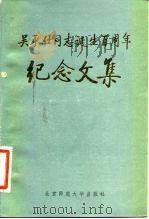 吴承仕同志诞生百周年
纪念文集
北京师范大学出版社